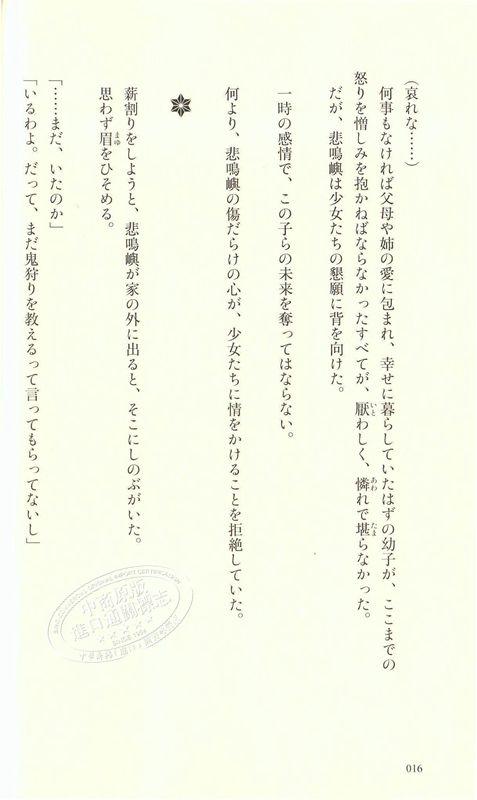 （哀れな……）
何事もなければ父母や姉の愛に包まれ、幸せに暮らしていたはずの幼子が、ここまでの
怒りを憎しみを抱かねばならなかったすべてが、厭わしく、憐れで堪らなかった。
だが、悲鳴嶼は少女たちの懇願に背を向けた。
一時の感情で、この子らの未来を奪ってはならない。
何より、悲鳴嶼の傷だらけの心が、少女たちに情をかけることを拒絶していた。
薪割りをしようと、悲鳴嶼が家の外に出ると、そこにしのぶがいた。
思わず眉をひそめる。
「……まだ、いたのか」
「いるわよ。だって、まだ鬼狩りを教えるって言ってもらってないし」
016